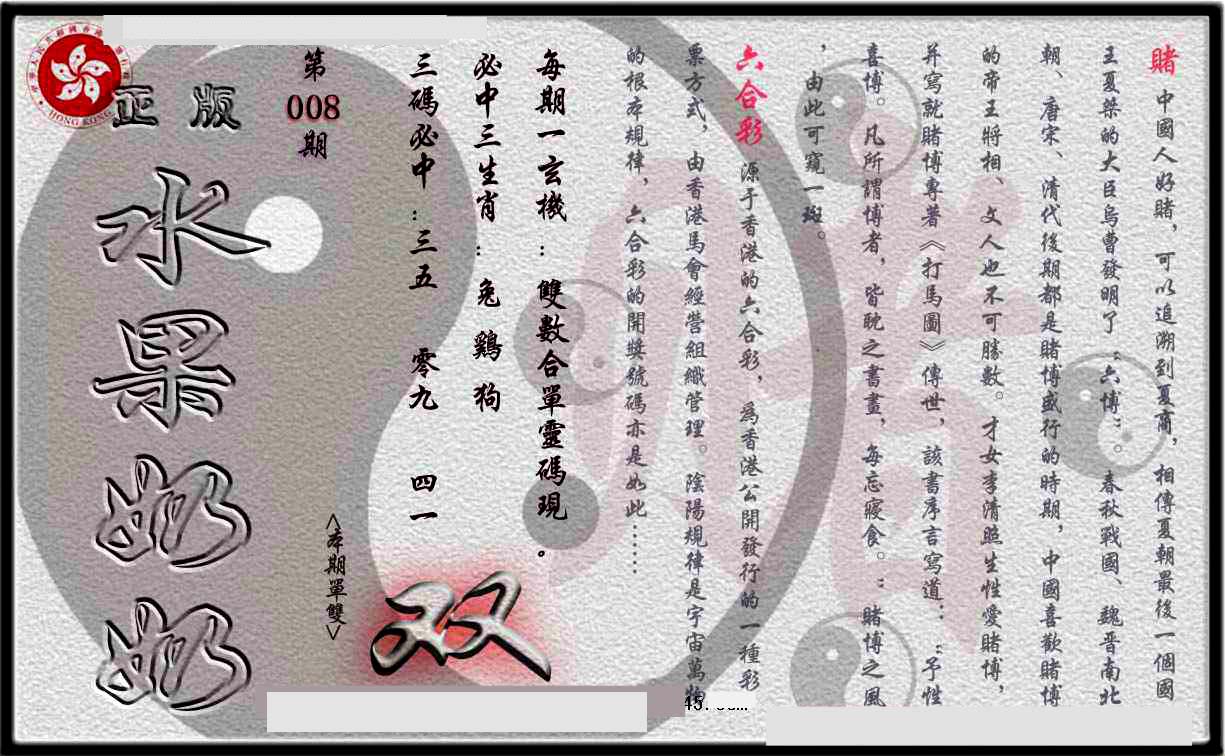 賭 中國人好賭，可以追溯到夏商，相傳夏朝最後一個國
王夏桀的大臣烏曹發明了“六博”。春秋戰國、魏晋南北
朝、唐宋、清代後期都是賭博盛行的時期，中國喜歡賭博
的帝王將相、文人也不可勝數。才女李清照生性愛賭博，
并寫就賭博專著《打馬圖》傳世，該書序言寫道：“予性
喜博。凡所謂博者，皆耽之晝晝，每忘寢食。”：賭博之風
，由此可窺一斑。
六合彩 源于香港的六合彩，為香港公開發行的一種彩
票方式，由香港馬會經營組織管理。陰陽規律是宇宙萬物
的根本規律，六合彩的開獎號碼亦是如此……
每期一玄機：雙數合單靈碼現。
必中三生肖：兔 鷄 狗
三碼必中：三五 零九 四一
<本期單雙>
双
第
008
期
正版
水果奶奶
HONG KONG